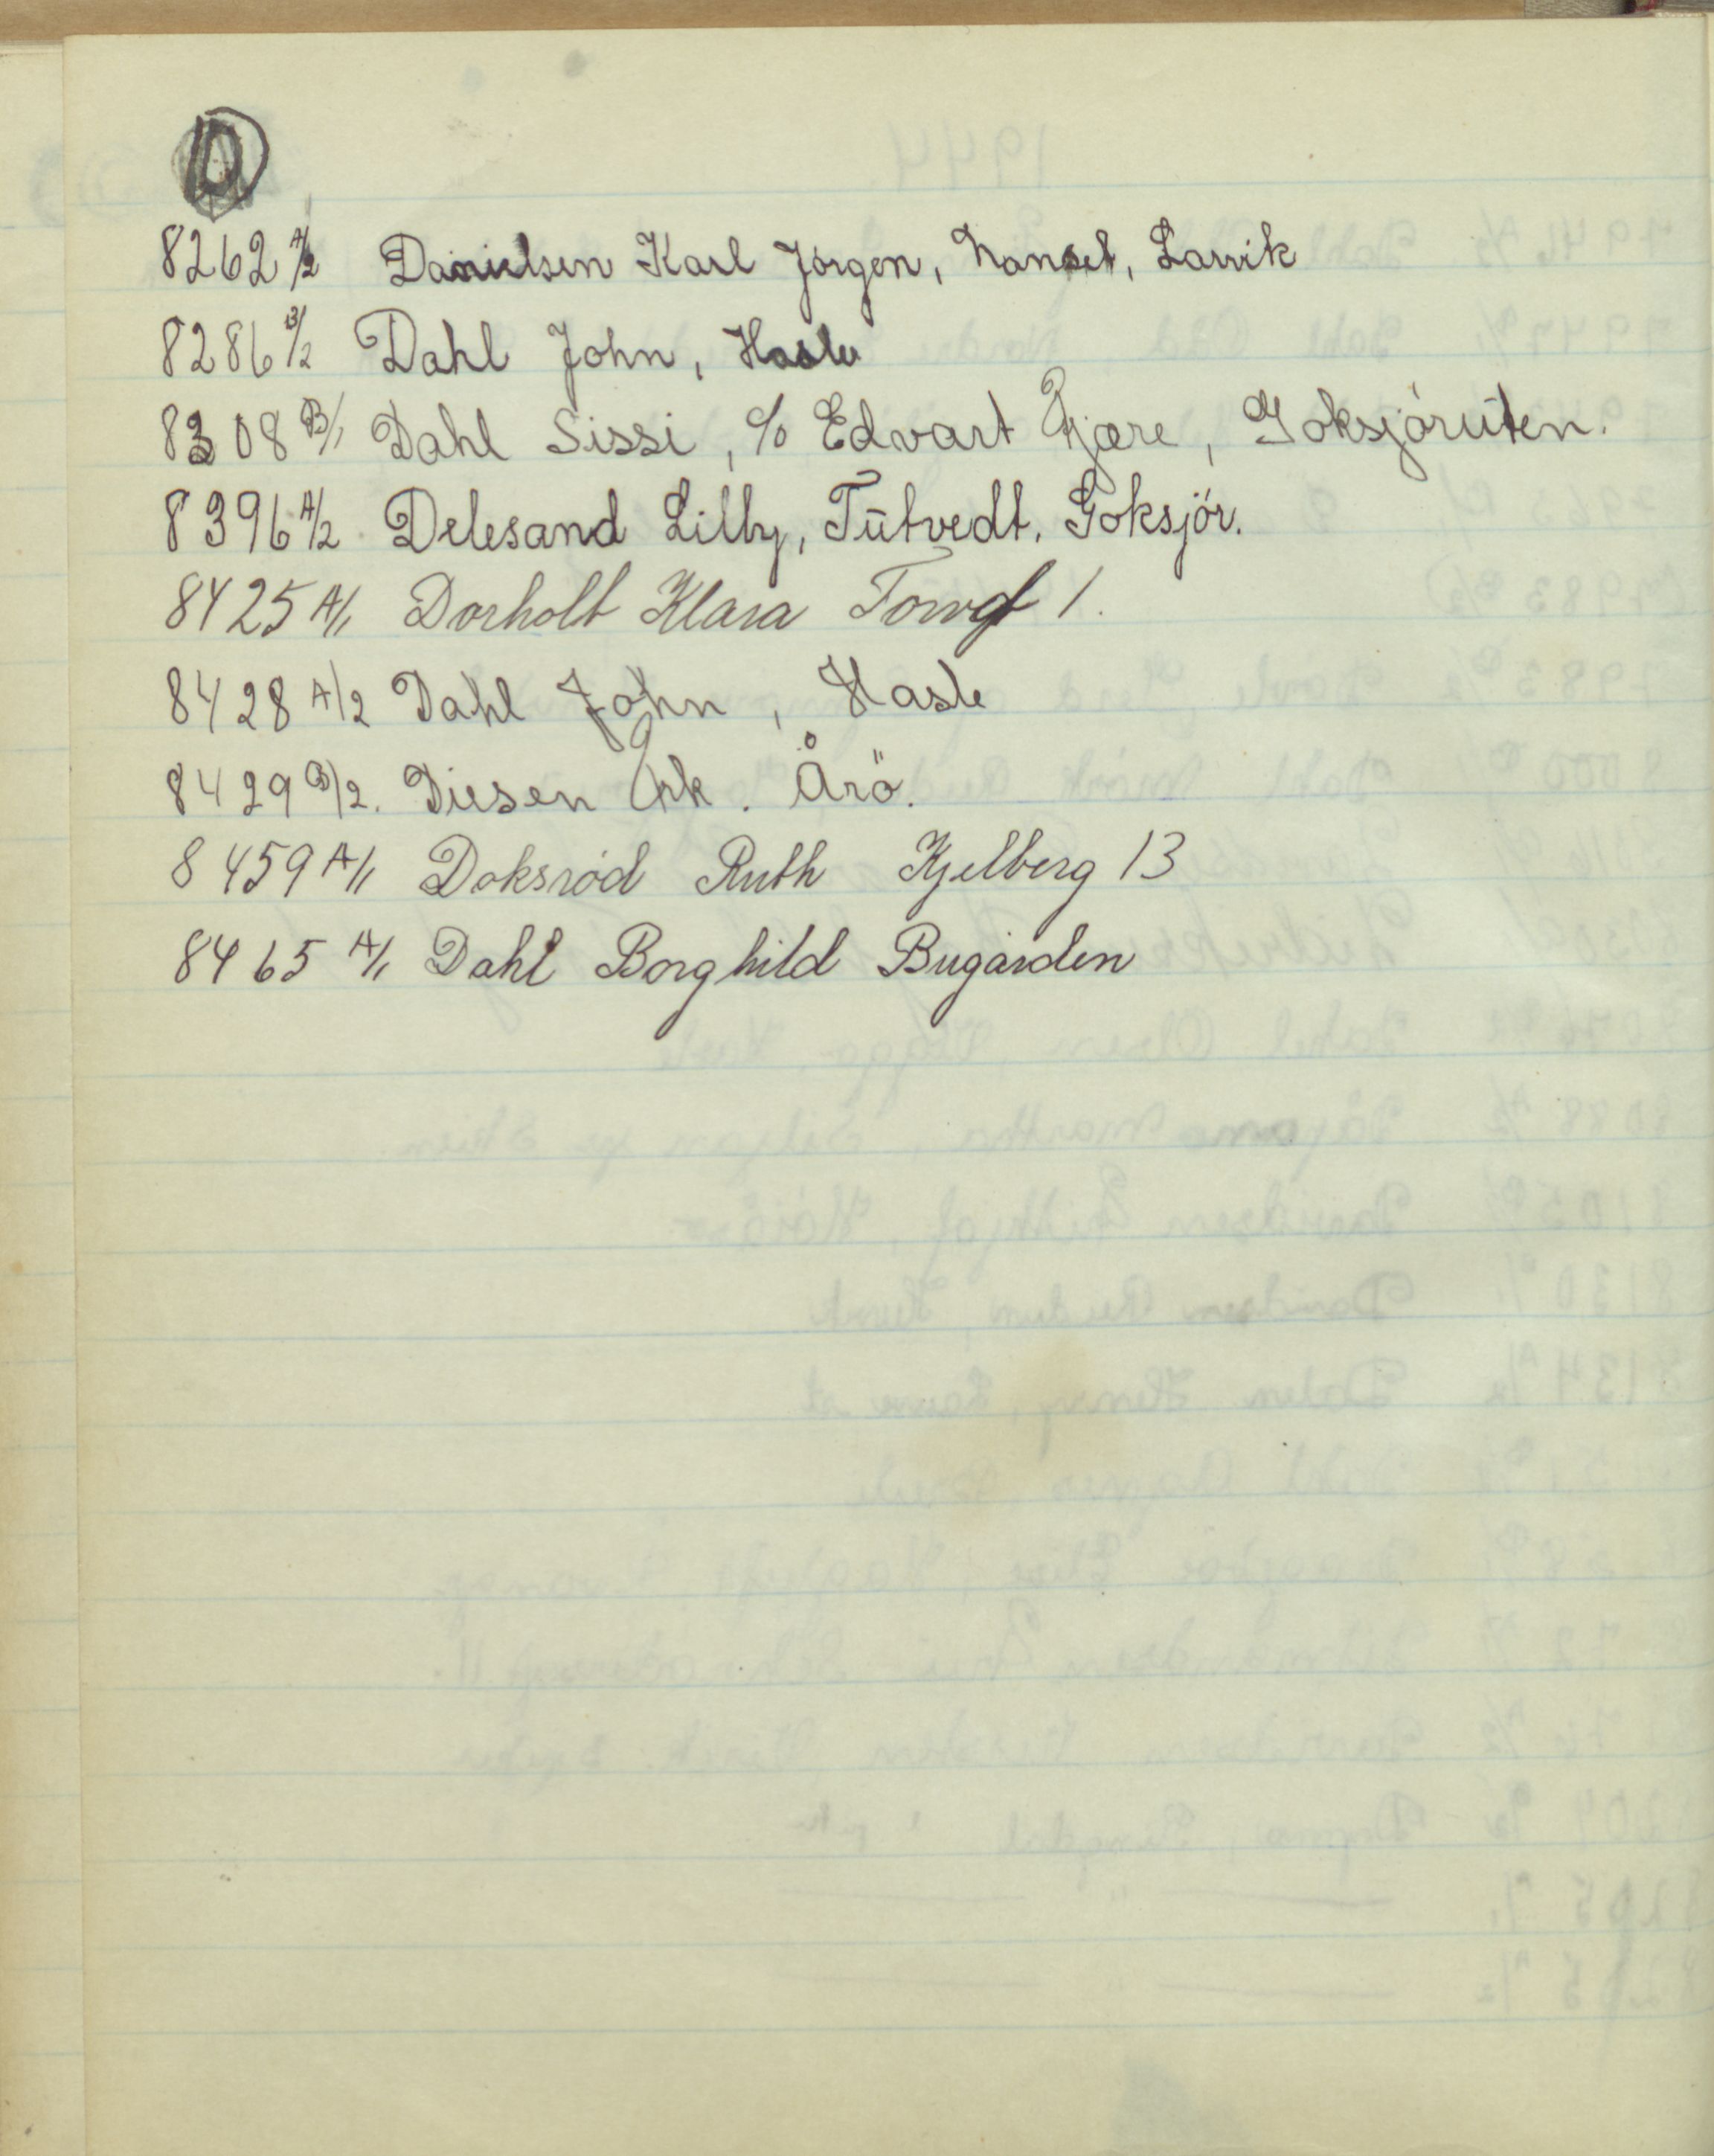 D
8262 A/2 Danielsen Karl Jörgen, Nanset, Larvik
8286 B/2 Dahl John, Hasle
8308 B/1 Dahl Sissi, c/o Edvart Kjære, Goksjörūten.
8396 A/2 Delesand Lilly, Tūtvedt, Goksjör.
8425 A/1 Dorholt Klara Torvgt 1.
8428 A/2 Dahl John, Hasle
8429 B/2. Diesen Ark. Årö.
8459 A/1 Doksröd Ruth Kjelberg 13
8465 A/1 Dahl Borghild Bugården